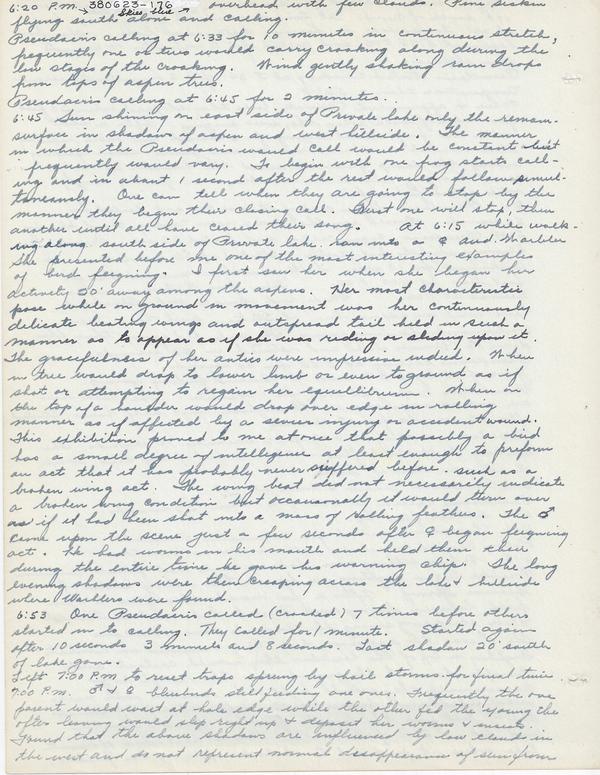 6:20 P.M. 380623-176 overhead with few clouds. Pine siskin
Skies blue
flying south alone and calling.
Pseudacris calling at 6:33 for 10 minutes in continuous stretch,
frequently one or two would carry croaking along during the
low stages of the croaking. Wind gently shaking rain drops
from tops of aspen trees.
Pseudacris calling at 6:45 for 2 minutes.
6:45 Sun shining on east side of Private lake only the remain-
surface in shadow of aspen and west hillside. The manner
in which the Pseudacris would call would be constant but
frequently would vary. To begin with one frog starts call-
ing and in about 1 second after the rest would follow simul-
taneously. One can tell when they are going to stop by the
manner they begin their closing call. First one will stop, then
another until all have ceased their song. At 6:15 while walk-
ing along south side of Private lake ran into a ♀ Aud. Warbler
She presented before me one of the most interesting examples
of bird feigning. I first saw her when she began her
activity 50' away among the aspens. Her most characteristic
pose while on ground in movement was her continuously
delicate beating wings and outspread tail held in such a
manner as to appear as if she was riding or sliding upon it.
The gracefulness of her antics were impressive indeed. When
in tree would drop to lower limb or even to ground as if
shot or attempting to regain her equilibrium. When on
the top of a boulder would drop over edge in rolling
manner as if affected by a severe injury or accident wound.
This exhibition proved to me at once that possibly a bird
has a small degree of intelligence at least enough to preform
an act that it has probably never suffered before such as a
broken wing act. The wing beat did not necessarily indicate
a broken wing condition but occasionally it would turn over
as if it had been shot into a mass of rolling feathers. The ♂
came upon the scene just a few seconds after ♀ began feigning
act. He had worms in his mouth and held them there
during the entire time he gave his warning chip. The long
evening shadows were then creeping across the lake & hillside
where Warblers were found.
6:53 One Pseudacris called (croaked) 7 times before others
started in to calling. They called for 1 minute. Started again
after 10 seconds 3 minutes and 8 seconds. Last shadow 20' south
of lake gone.
Left 7:00 P.M to reset traps sprung by hail storms for final time.
7:00 P.M. ♂ & ♀ bluebirds still feeding one ones. Frequently the one
parent would wait at hole edge while the other fed the young the
after leaving would slip right up & deposit her worms & insects.
Found that the above shadows are influenced by low clouds in
the west and do not represent normal disappearance of sun from